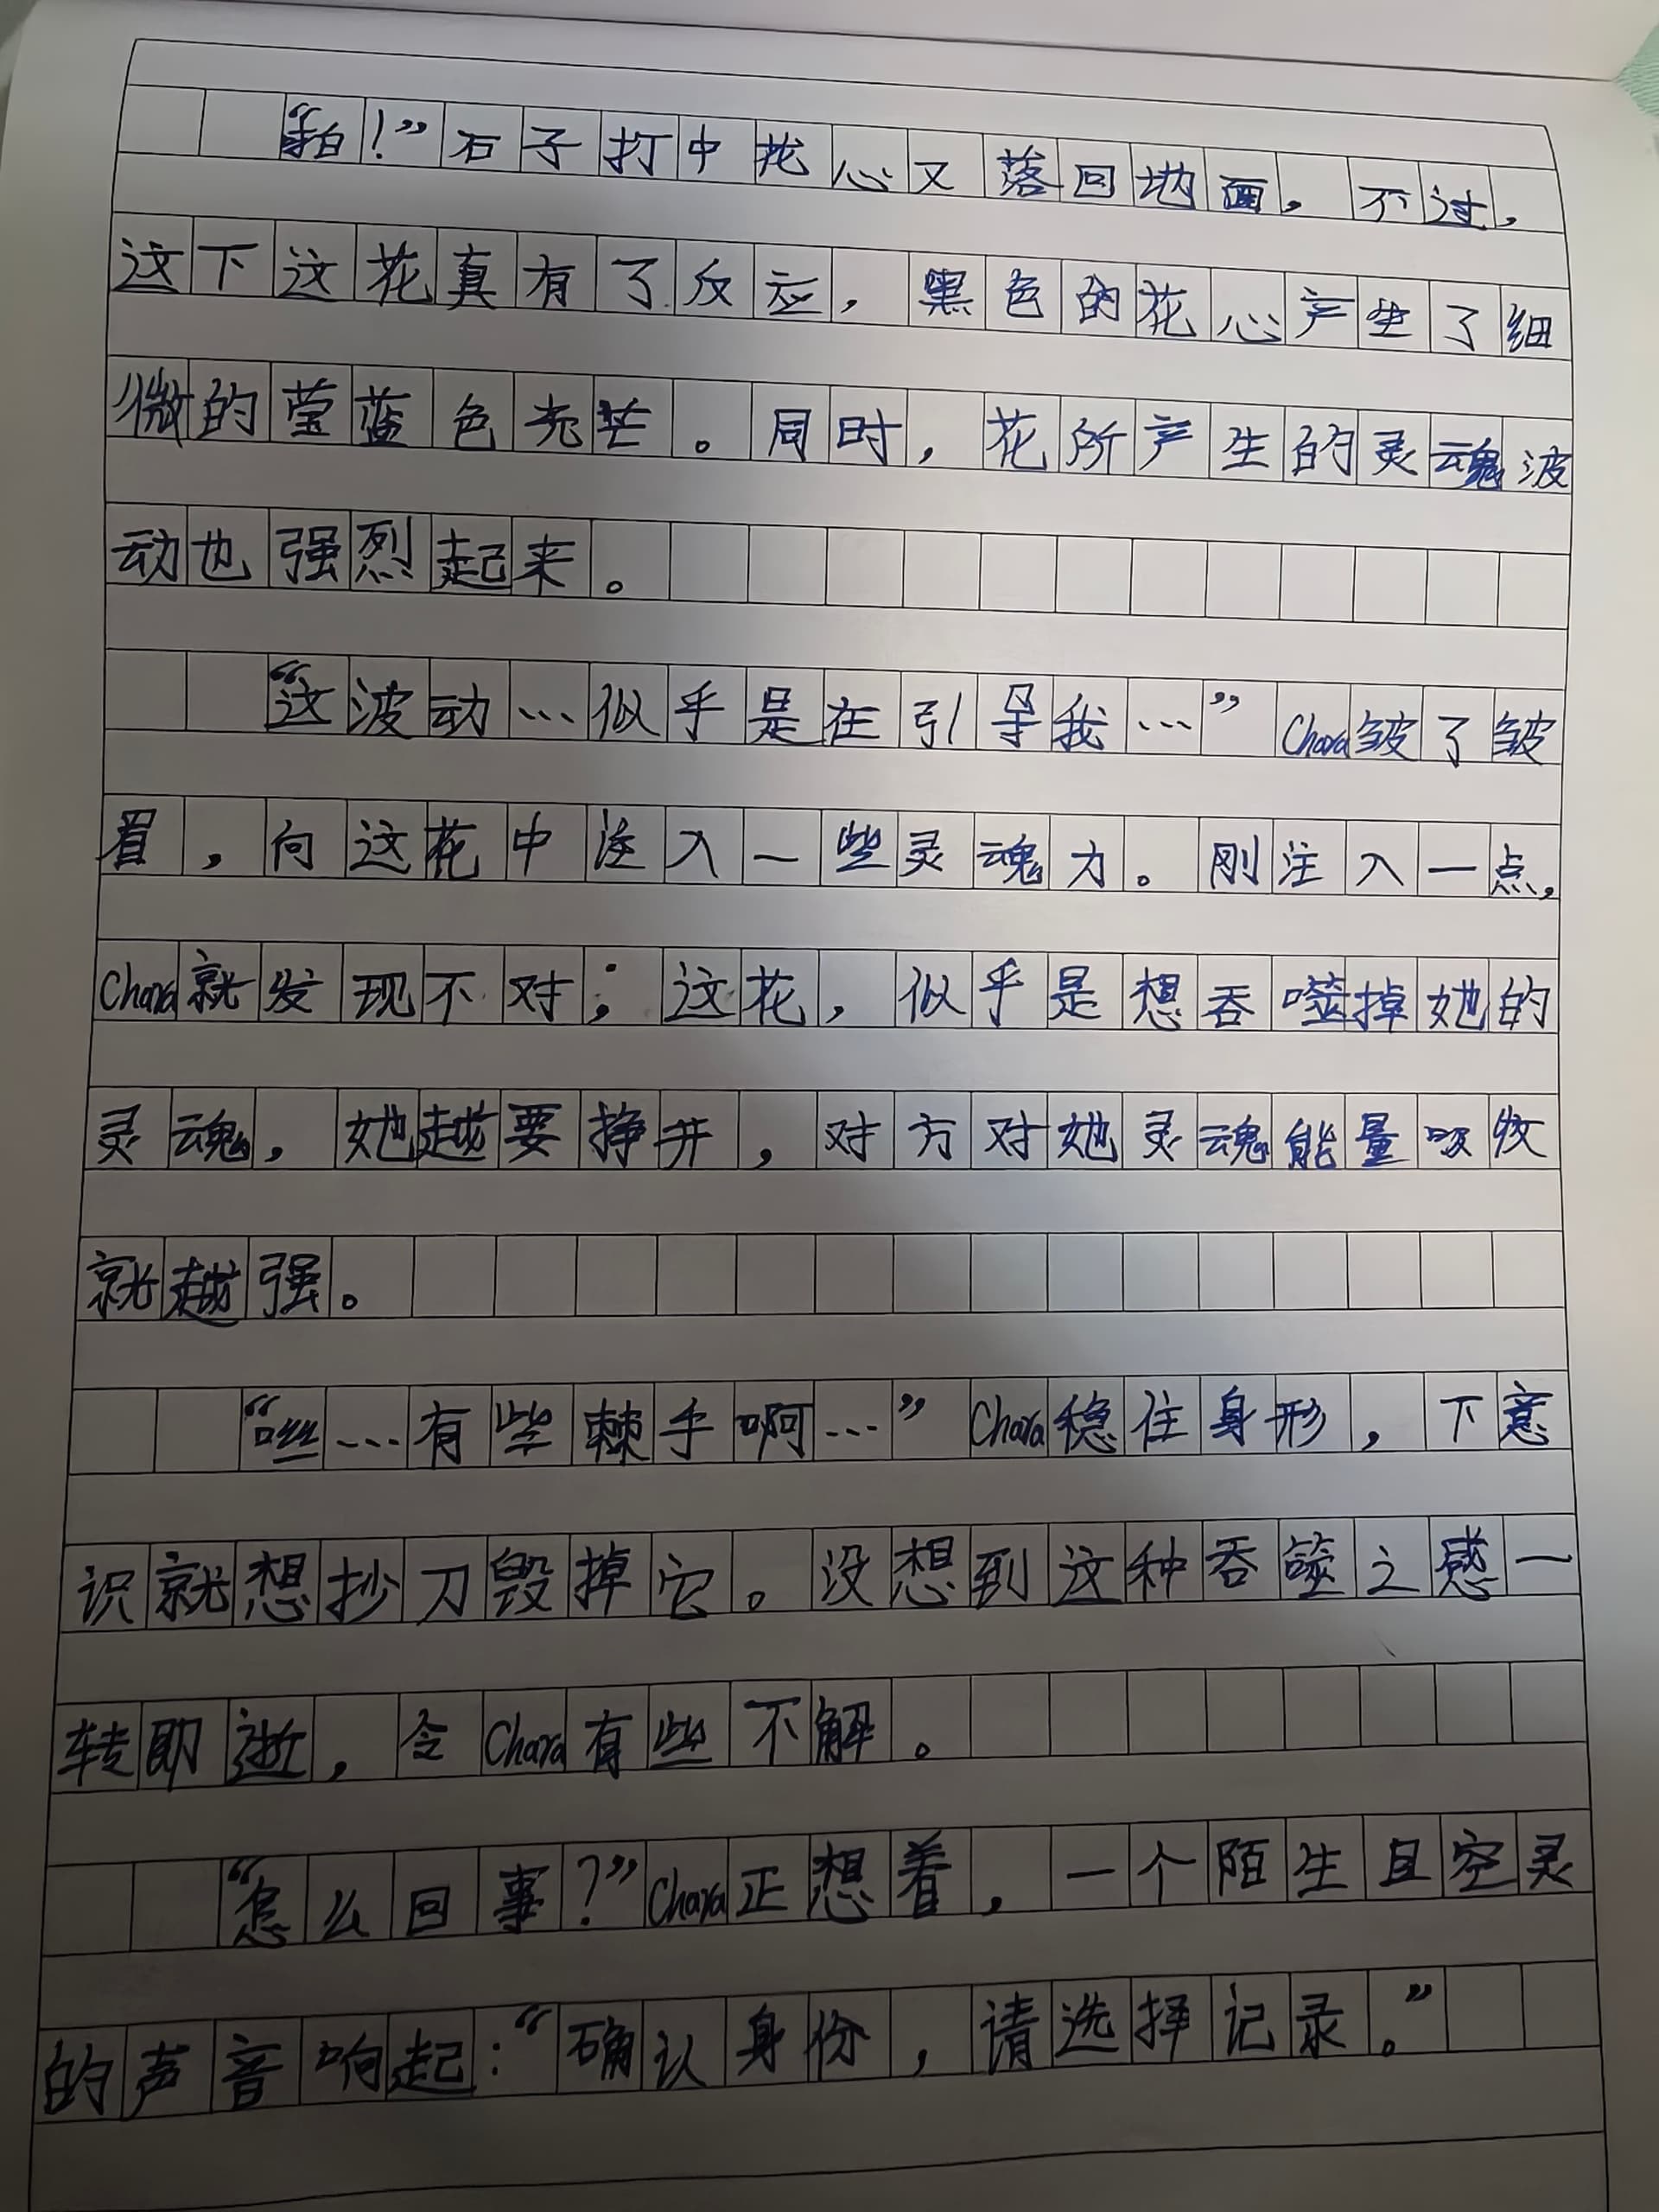 “拍！”石子打中花心又落回地面，不过，
这下这花真有了反应，黑色的花心产生了细
微的莹蓝色光芒。同时，花所产生的灵魂波
动也强烈起来。
“这波动…似乎是在引导我…”Chara皱了皱
眉，向这花中注入一些灵魂力。刚注入一点，
Chara就发现不对；这花，似乎是想吞噬掉她的
灵魂，她越要挣开，对方对她灵魂能量吸收
就越强。
“咝…有些棘手啊…”Chara稳住身形，下意
识就想抄刀毁掉它。没想到这种吞噬之感一
转即逝，令Chara有些不解。
“怎么回事？”Chara正想着，一个陌生且空灵
的声音响起：“确认身份，请选择记录。”